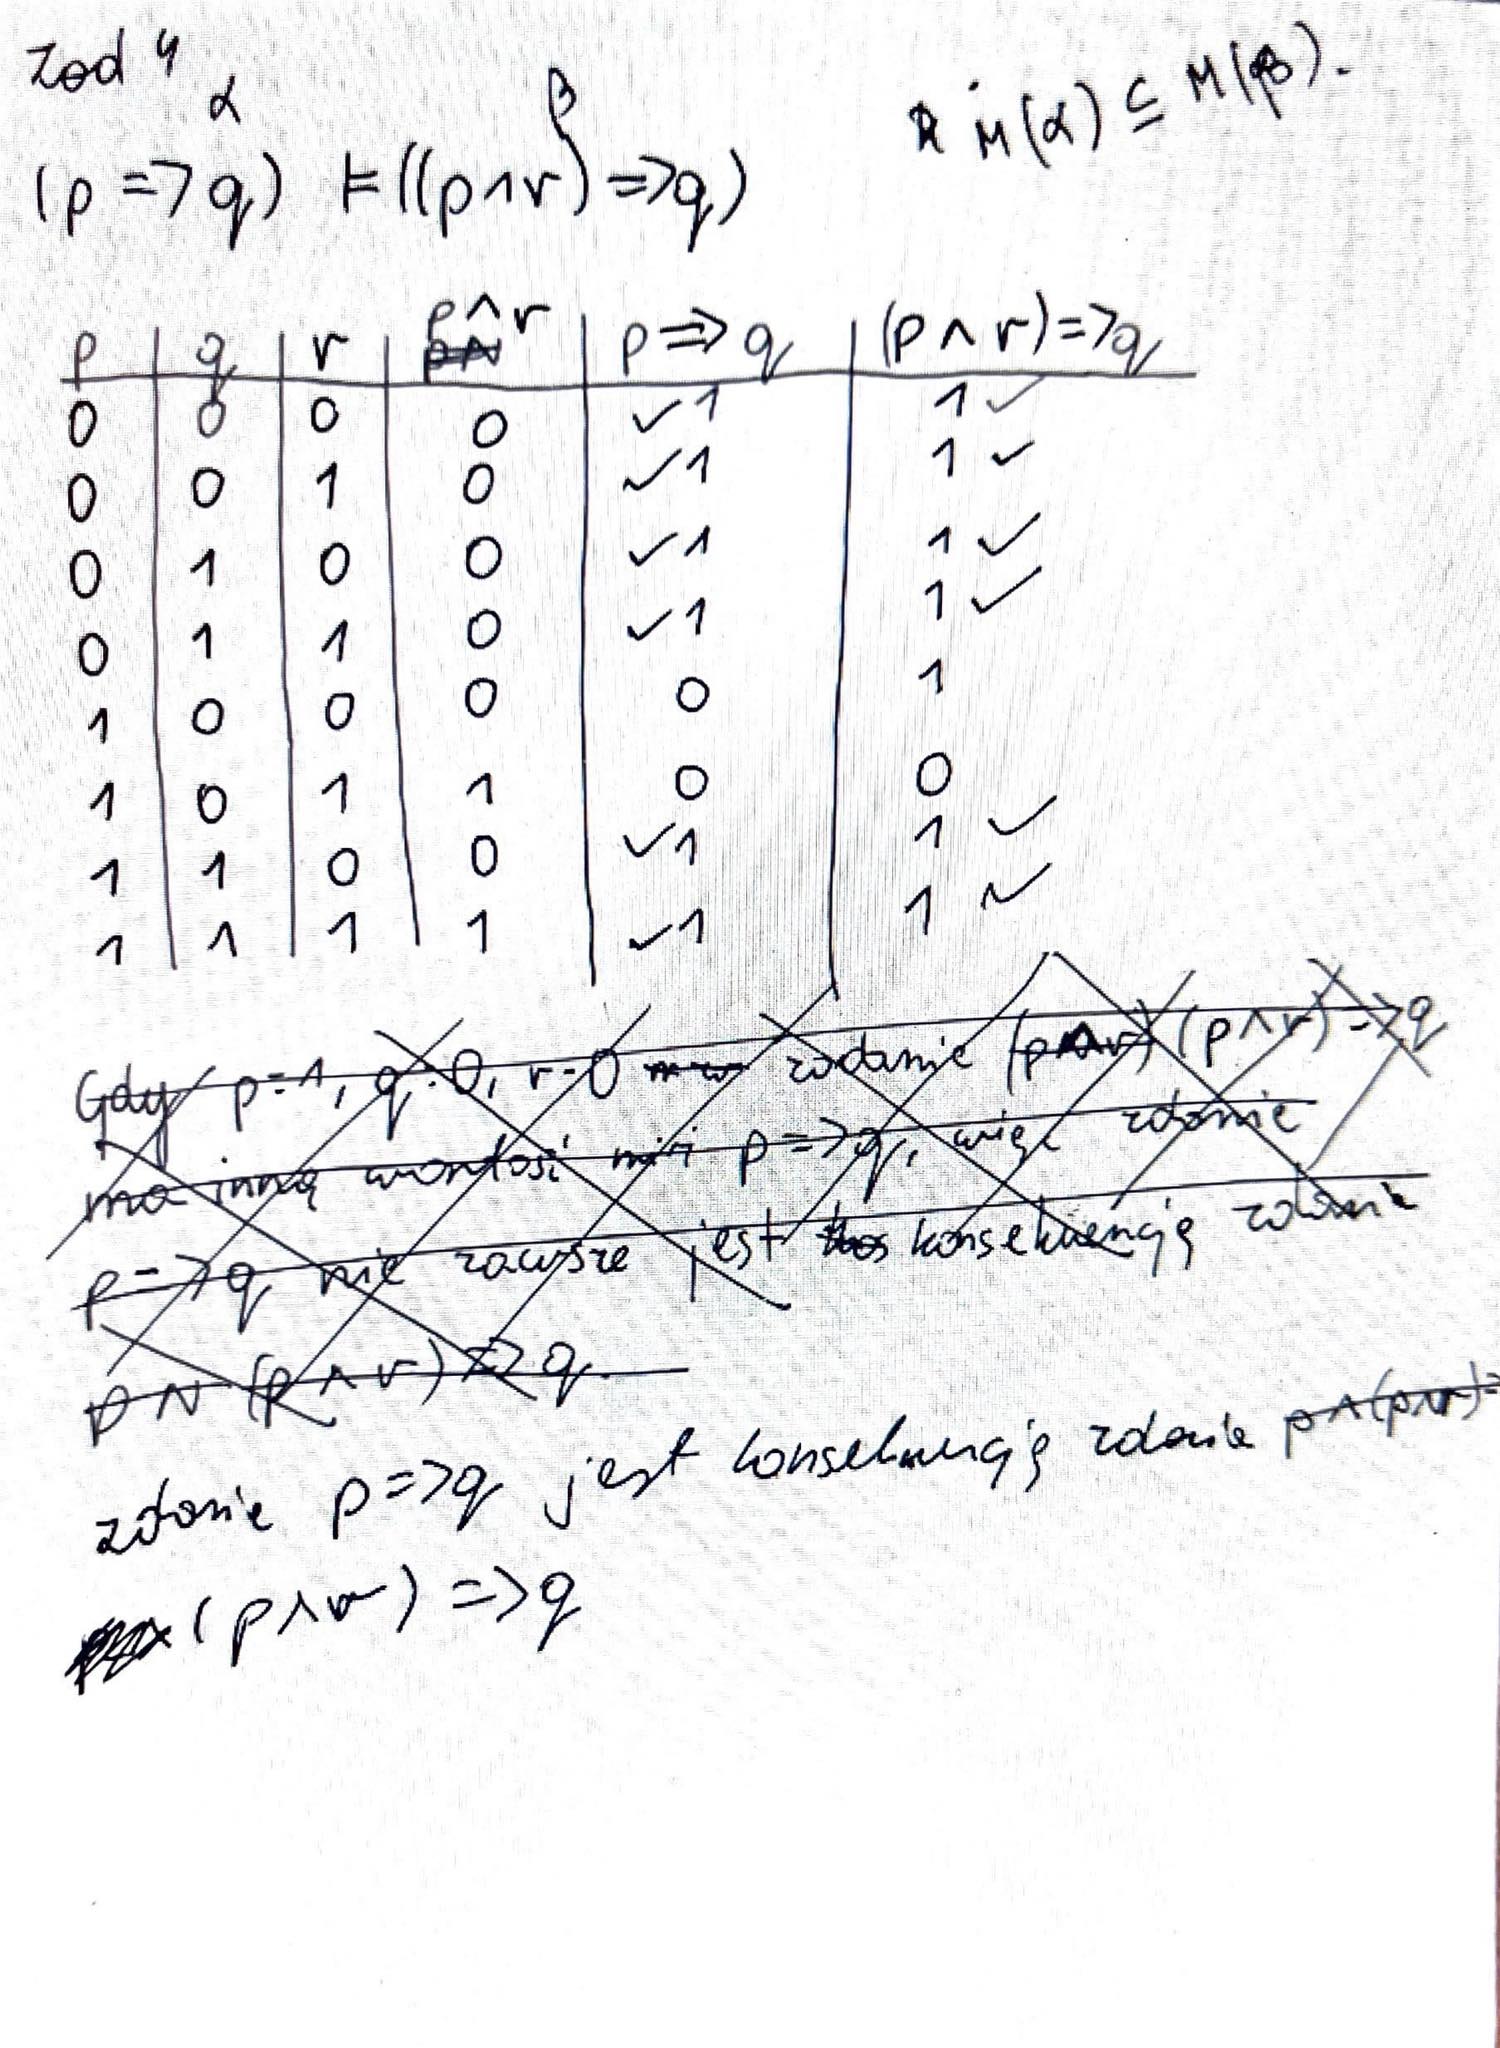 Zad 4
α β
M(α) ⊆ M(β).
(p => q) ⊨ ((p ∧ r) => q)
p q r p ∧ r p => q (p ∧ r) => q
0 0 0 0 ✓1 1✓
0 0 1 0 ✓1 1✓
0 1 0 0 ✓1 1✓
0 1 1 0 ✓1 1✓
1 0 0 0 0 1
1 0 1 1 0 0
1 1 0 0 ✓1 1✓
1 1 1 1 ✓1 1✓
Gdy p=1, q=0, r=0 zdanie (p∧r) (p ∧ r) => q
ma inną wartość niż p => q, więc zdanie
p => q nie zawsze jest konsekwencją zdania
p ∧ (p ∧ r) => q.
zdanie p => q jest konsekwencją zdania p ∧ (p∧r) =
(p ∧ r) => q